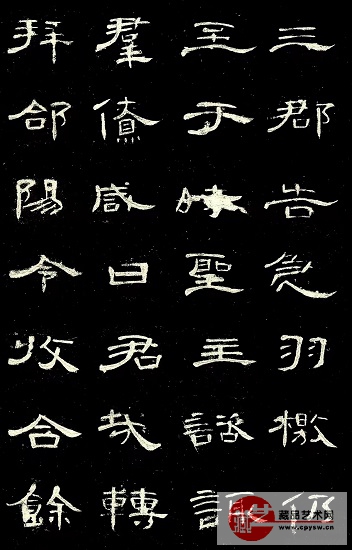 三郡告急羽檄仍
至于時聖主諮諏
羣僚咸曰君哉轉
拜郃陽令收合餘
藏品艺术网
www.cpysw.cn